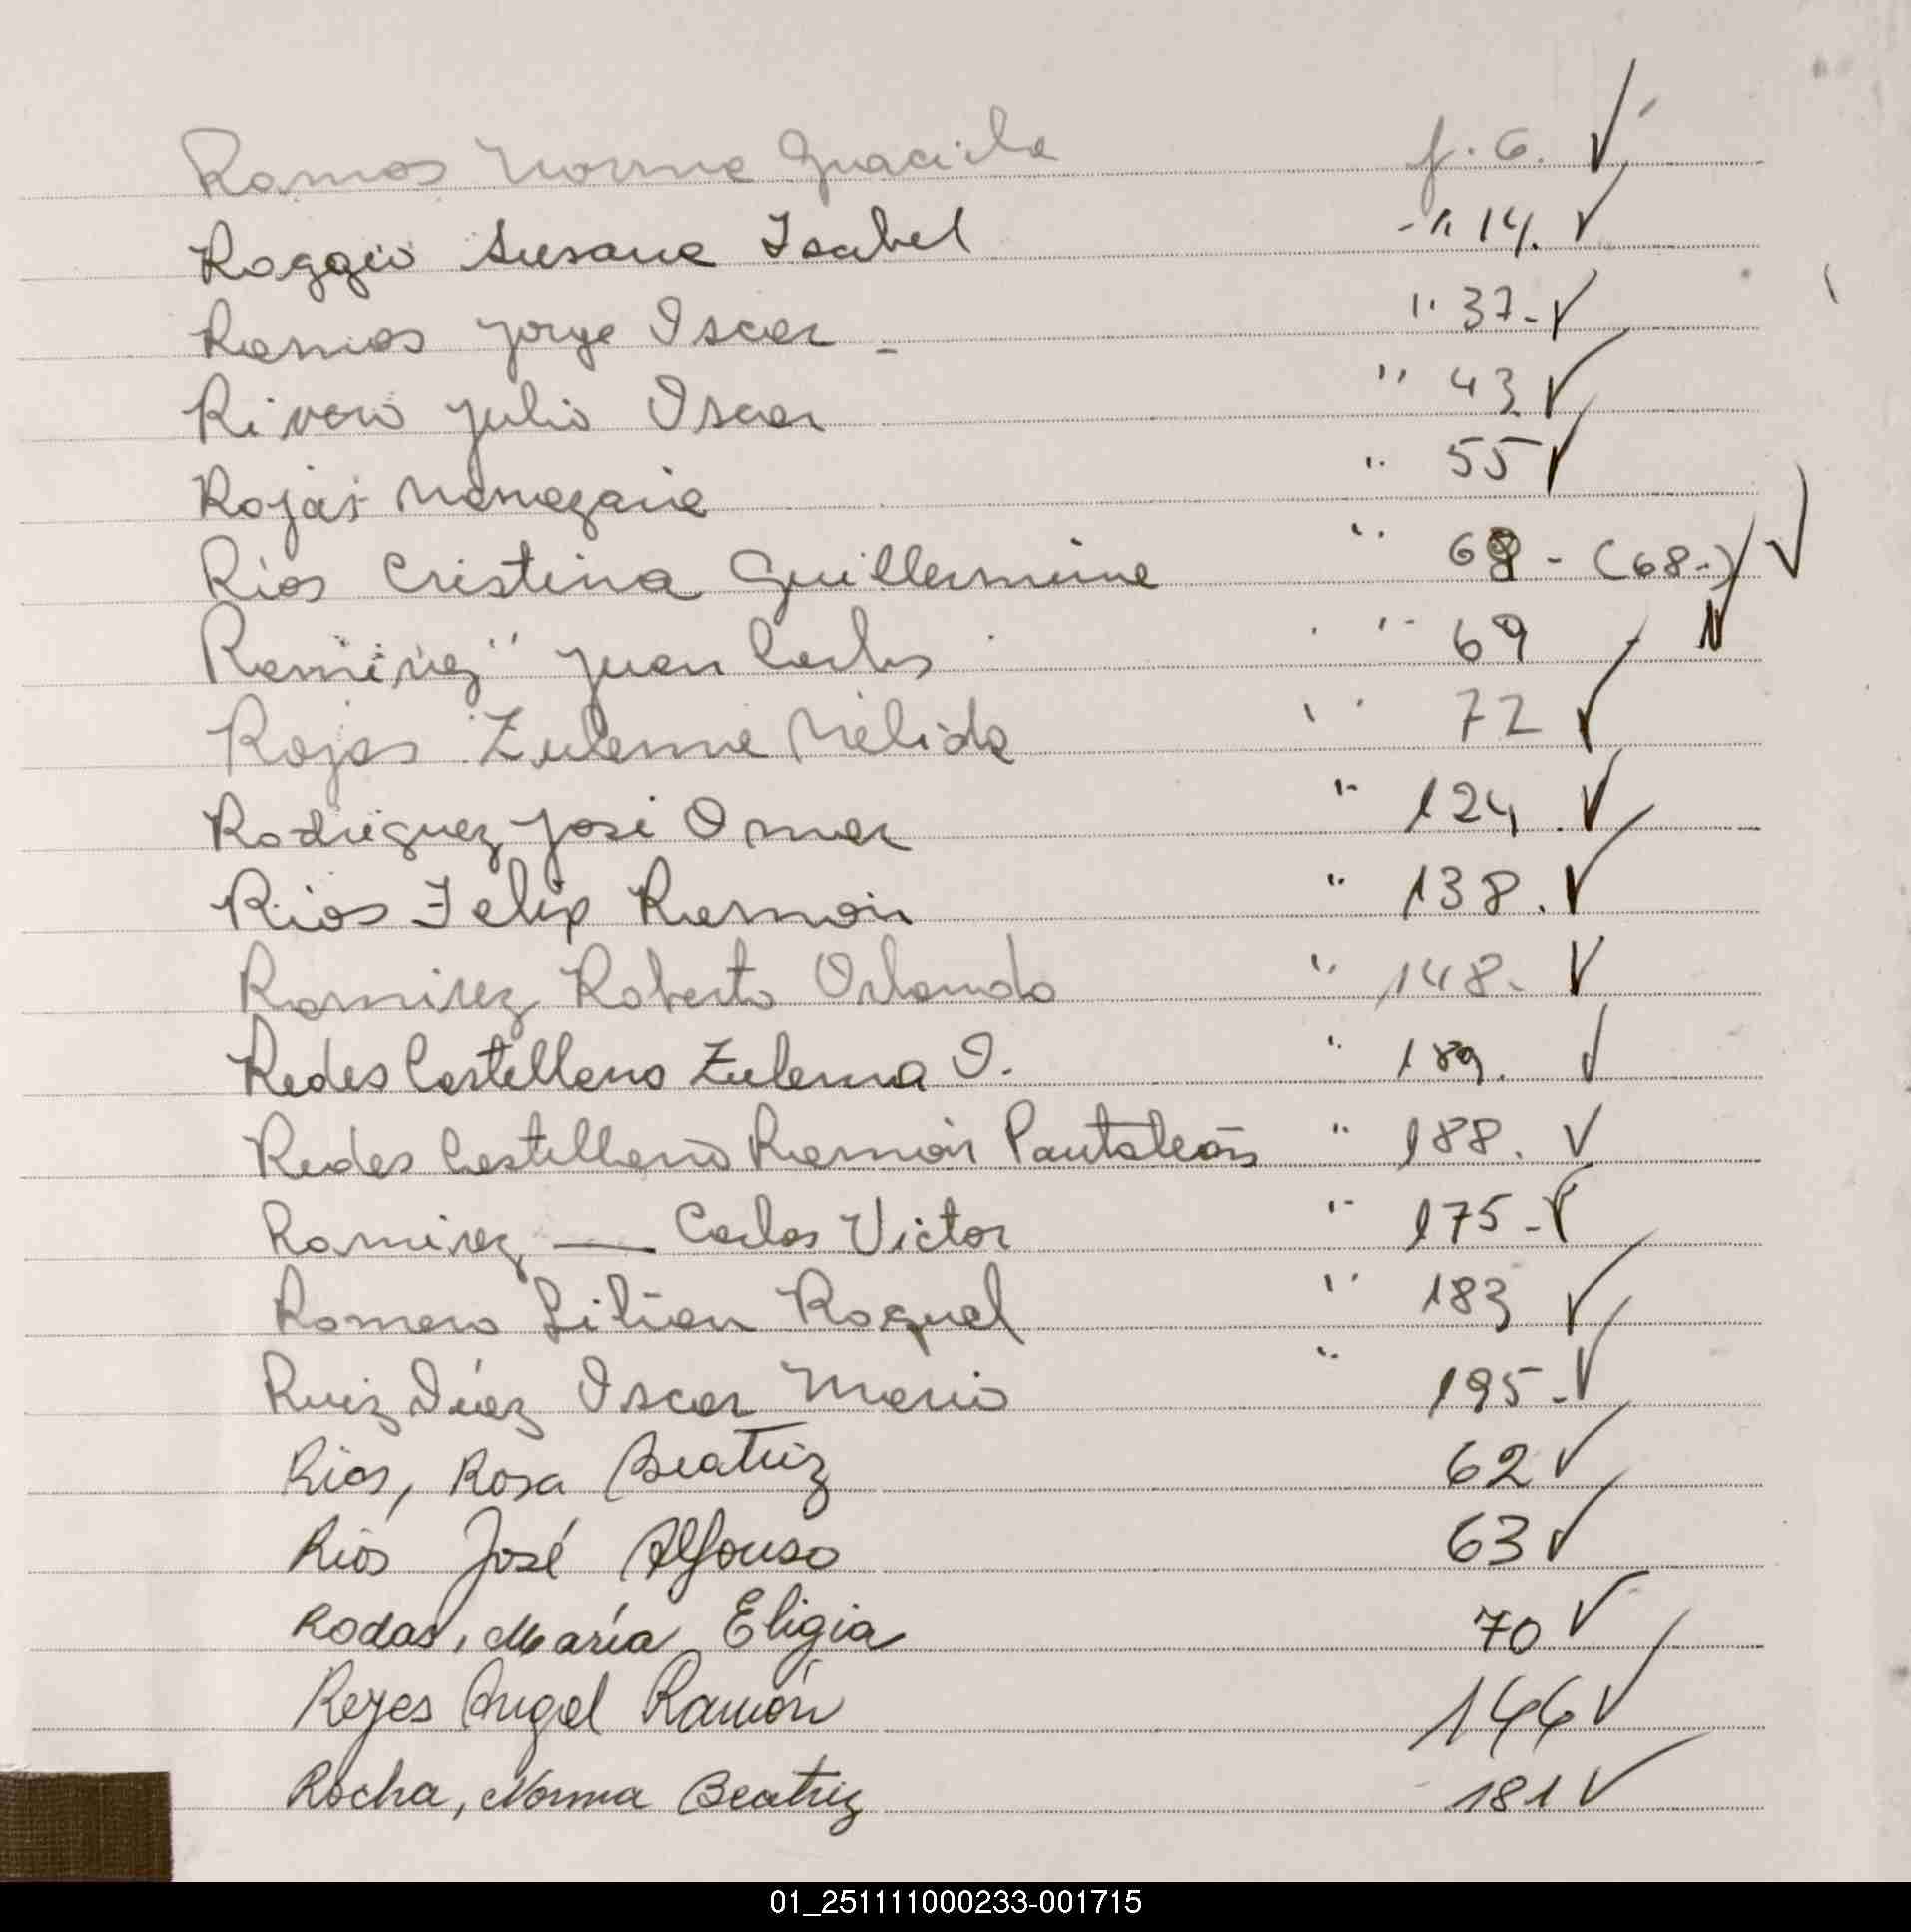 Ramos Norma Graciela f. 6. ✓
Raggio Susana Isabel -" 14. ✓
Ramos Jorge Oscar - " 37- ✓
Rivero Julio Oscar " 43 ✓
Rojas " 55 ✓
Ríos Cristina Guillermina " 68 - (68-) ✓
Ramírez Juan Carlos " 69 ✓
Rojas Zulema Nélida " 72 ✓
Rodríguez José Omar " 124 ✓
Ríos Felix Ramón " 138. ✓
Ramirez Roberto Orlando " 148- ✓
Redes Castellano Zulema O. " 189. ✓
Redes Castellano Ramón Pantaleón " 188. ✓
Ramirez — Carlos Victor " 175- ✓
Romero Lilian Raquel " 183 ✓
Ruiz Díaz Oscar Mario " 195- ✓
Rios, Rosa Beatriz 62 ✓
Rios José Alfonso 63 ✓
Rodas, María Eligia 70 ✓
Reyes Angel Ramón 144 ✓
Rocha, Norma Beatriz 181 ✓
01_251111000233-001715